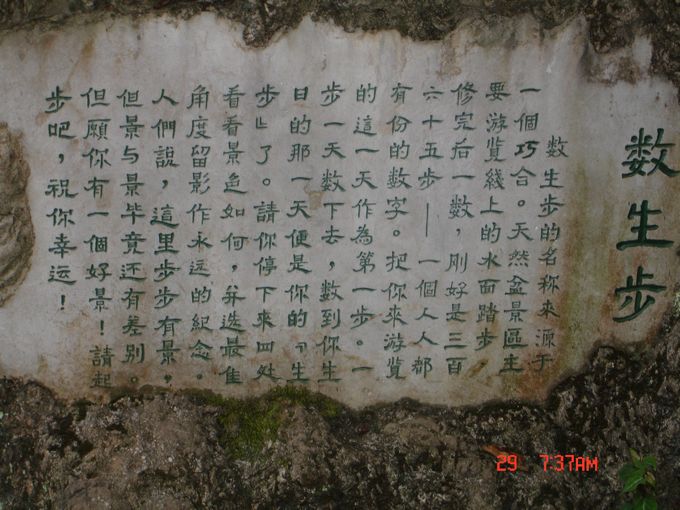 数生步
数生步的名称来源于
一個巧合。天然盆景區主
要游览綫上的水面踏步
修完后一数，刚好是三百
六十五步——一個人人都
有份的数字。把你来游览
的這一天作為第一步。一
步一天数下去，数到你生
日的那一天便是你的『生
步』了。請你停下来四处
看看景色如何，并选最佳
角度留影作永远的纪念。
人們說，這里步步有景，
但景与景毕竟还有差别。
但願你有一個好景！請起
步吧，祝你幸运！
29 7:37AM